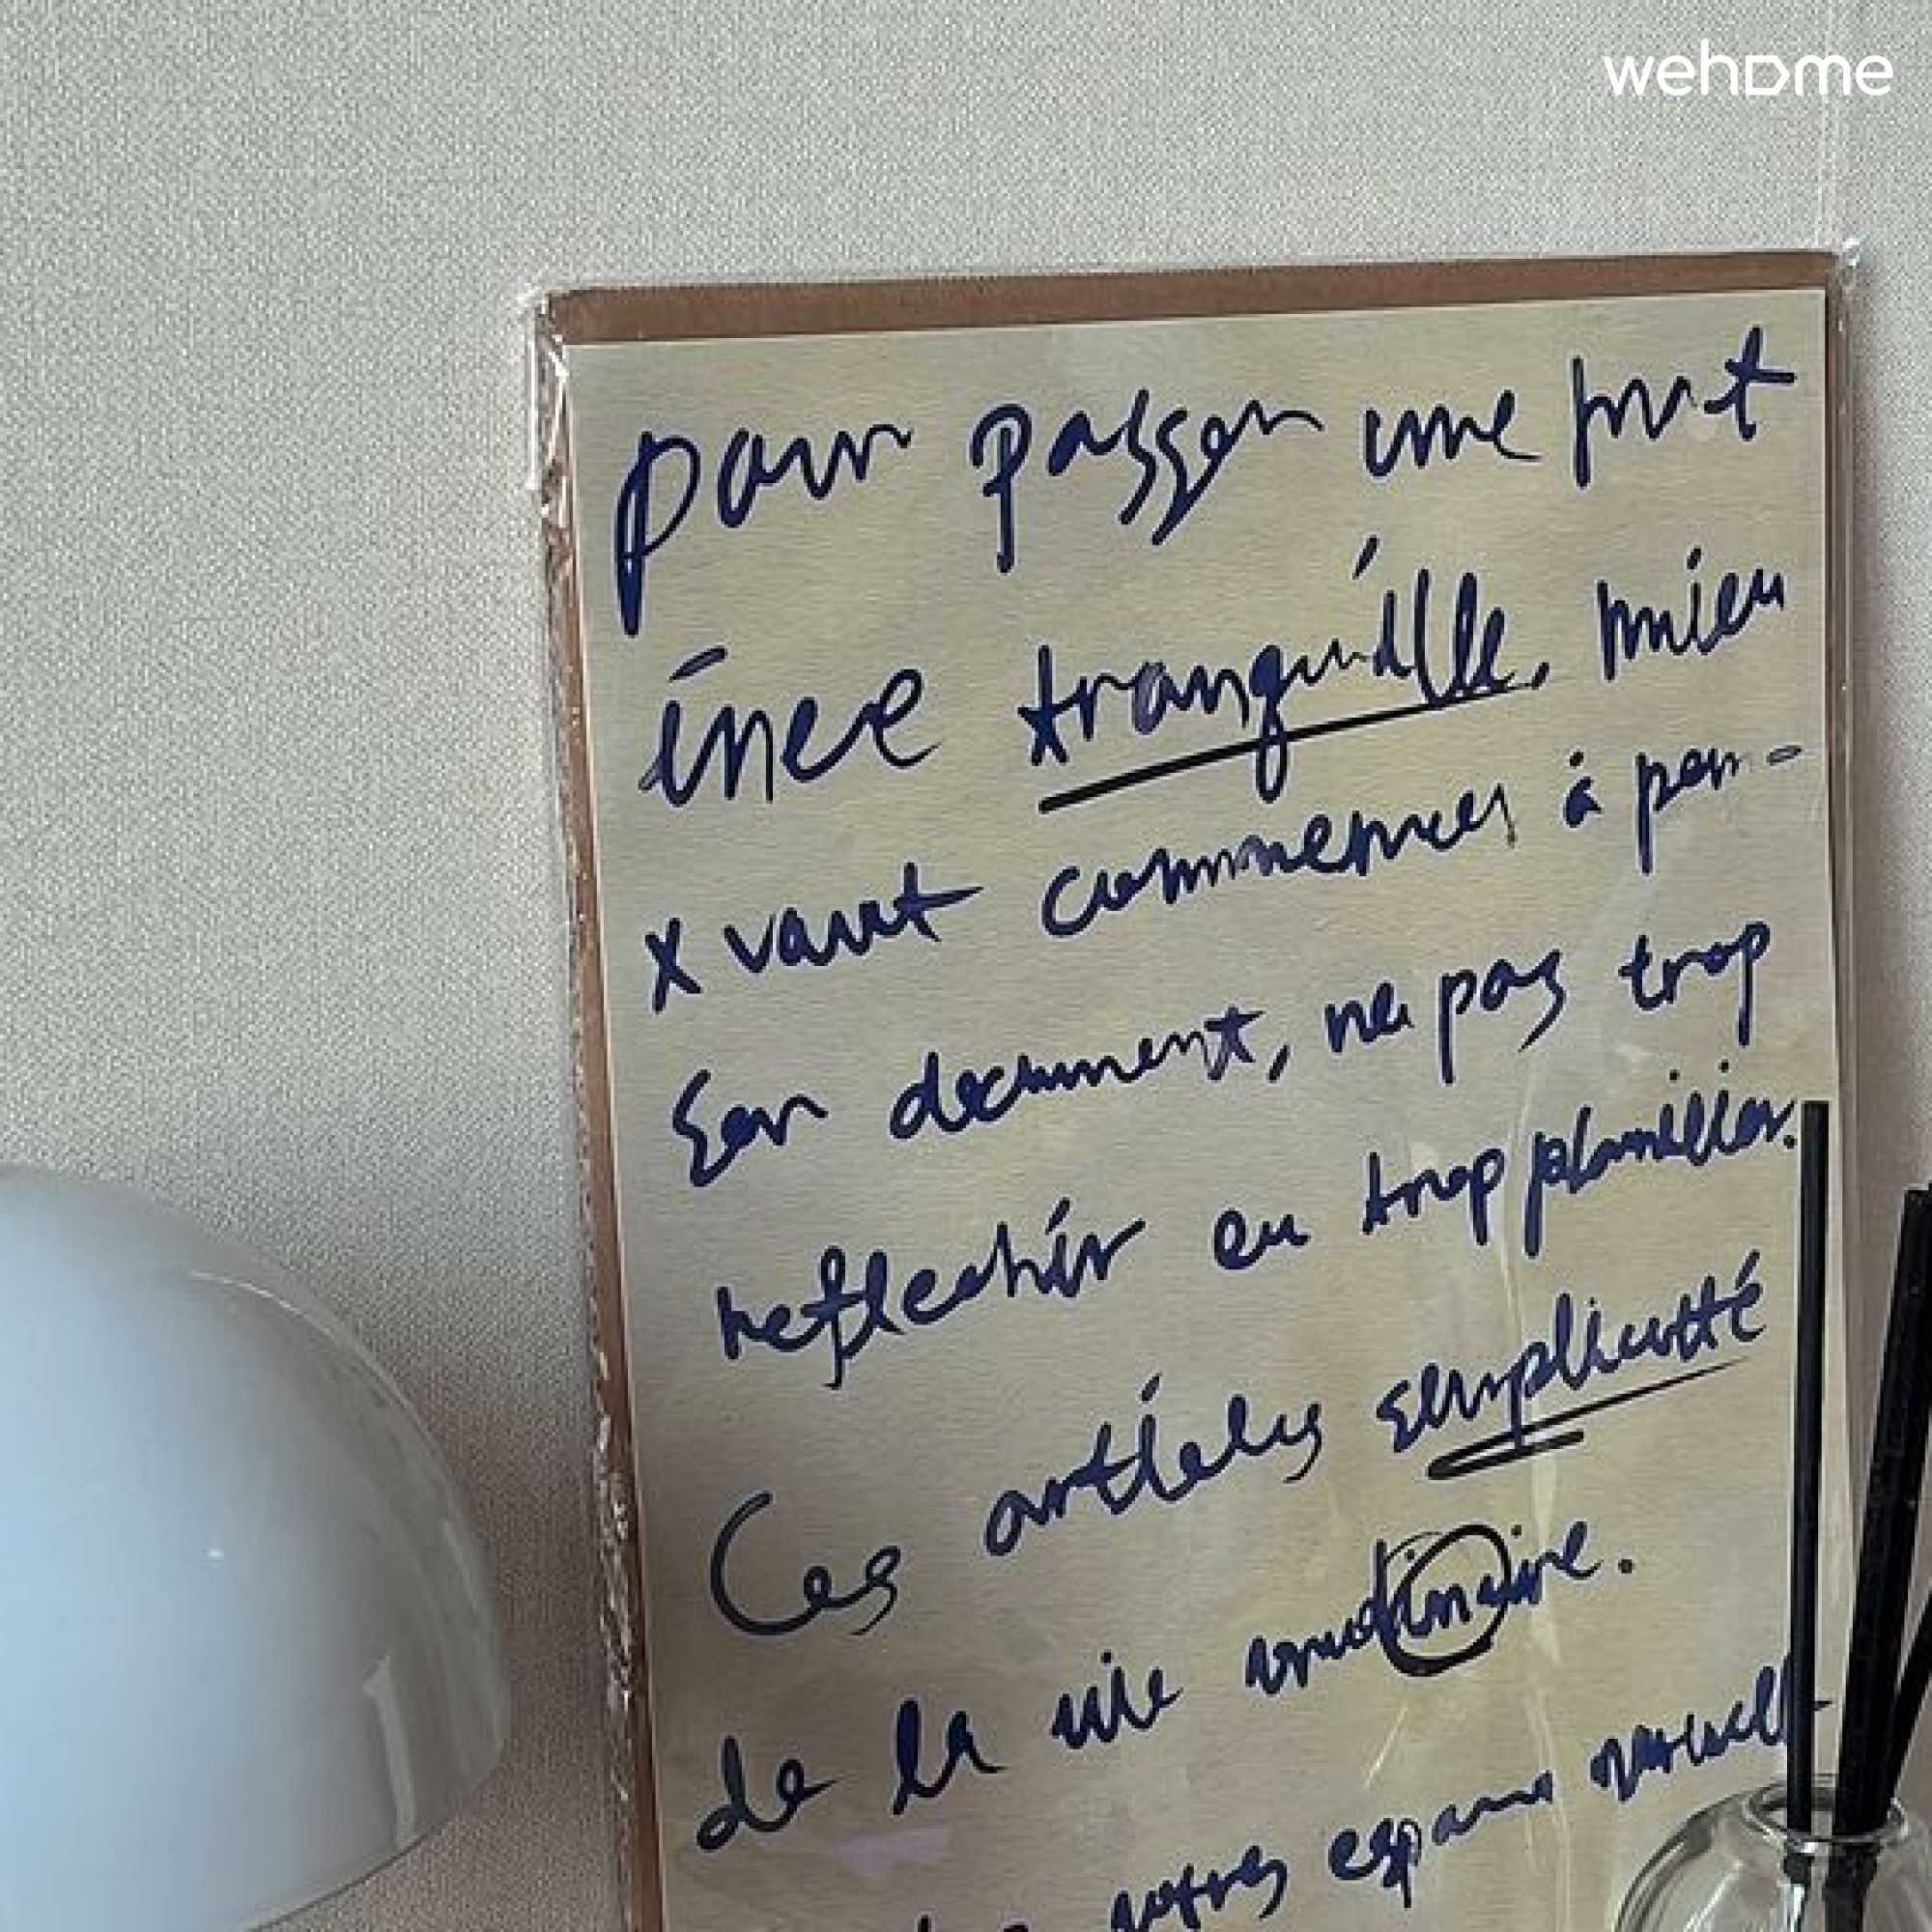 wehome
pour passer une nuit
inee tranquille. mieu
x vaut commencer à pen-
ser document, ne pas trop
reflechir ou trop planifier.
Ces articles simplicité
de la vie
autres espaces